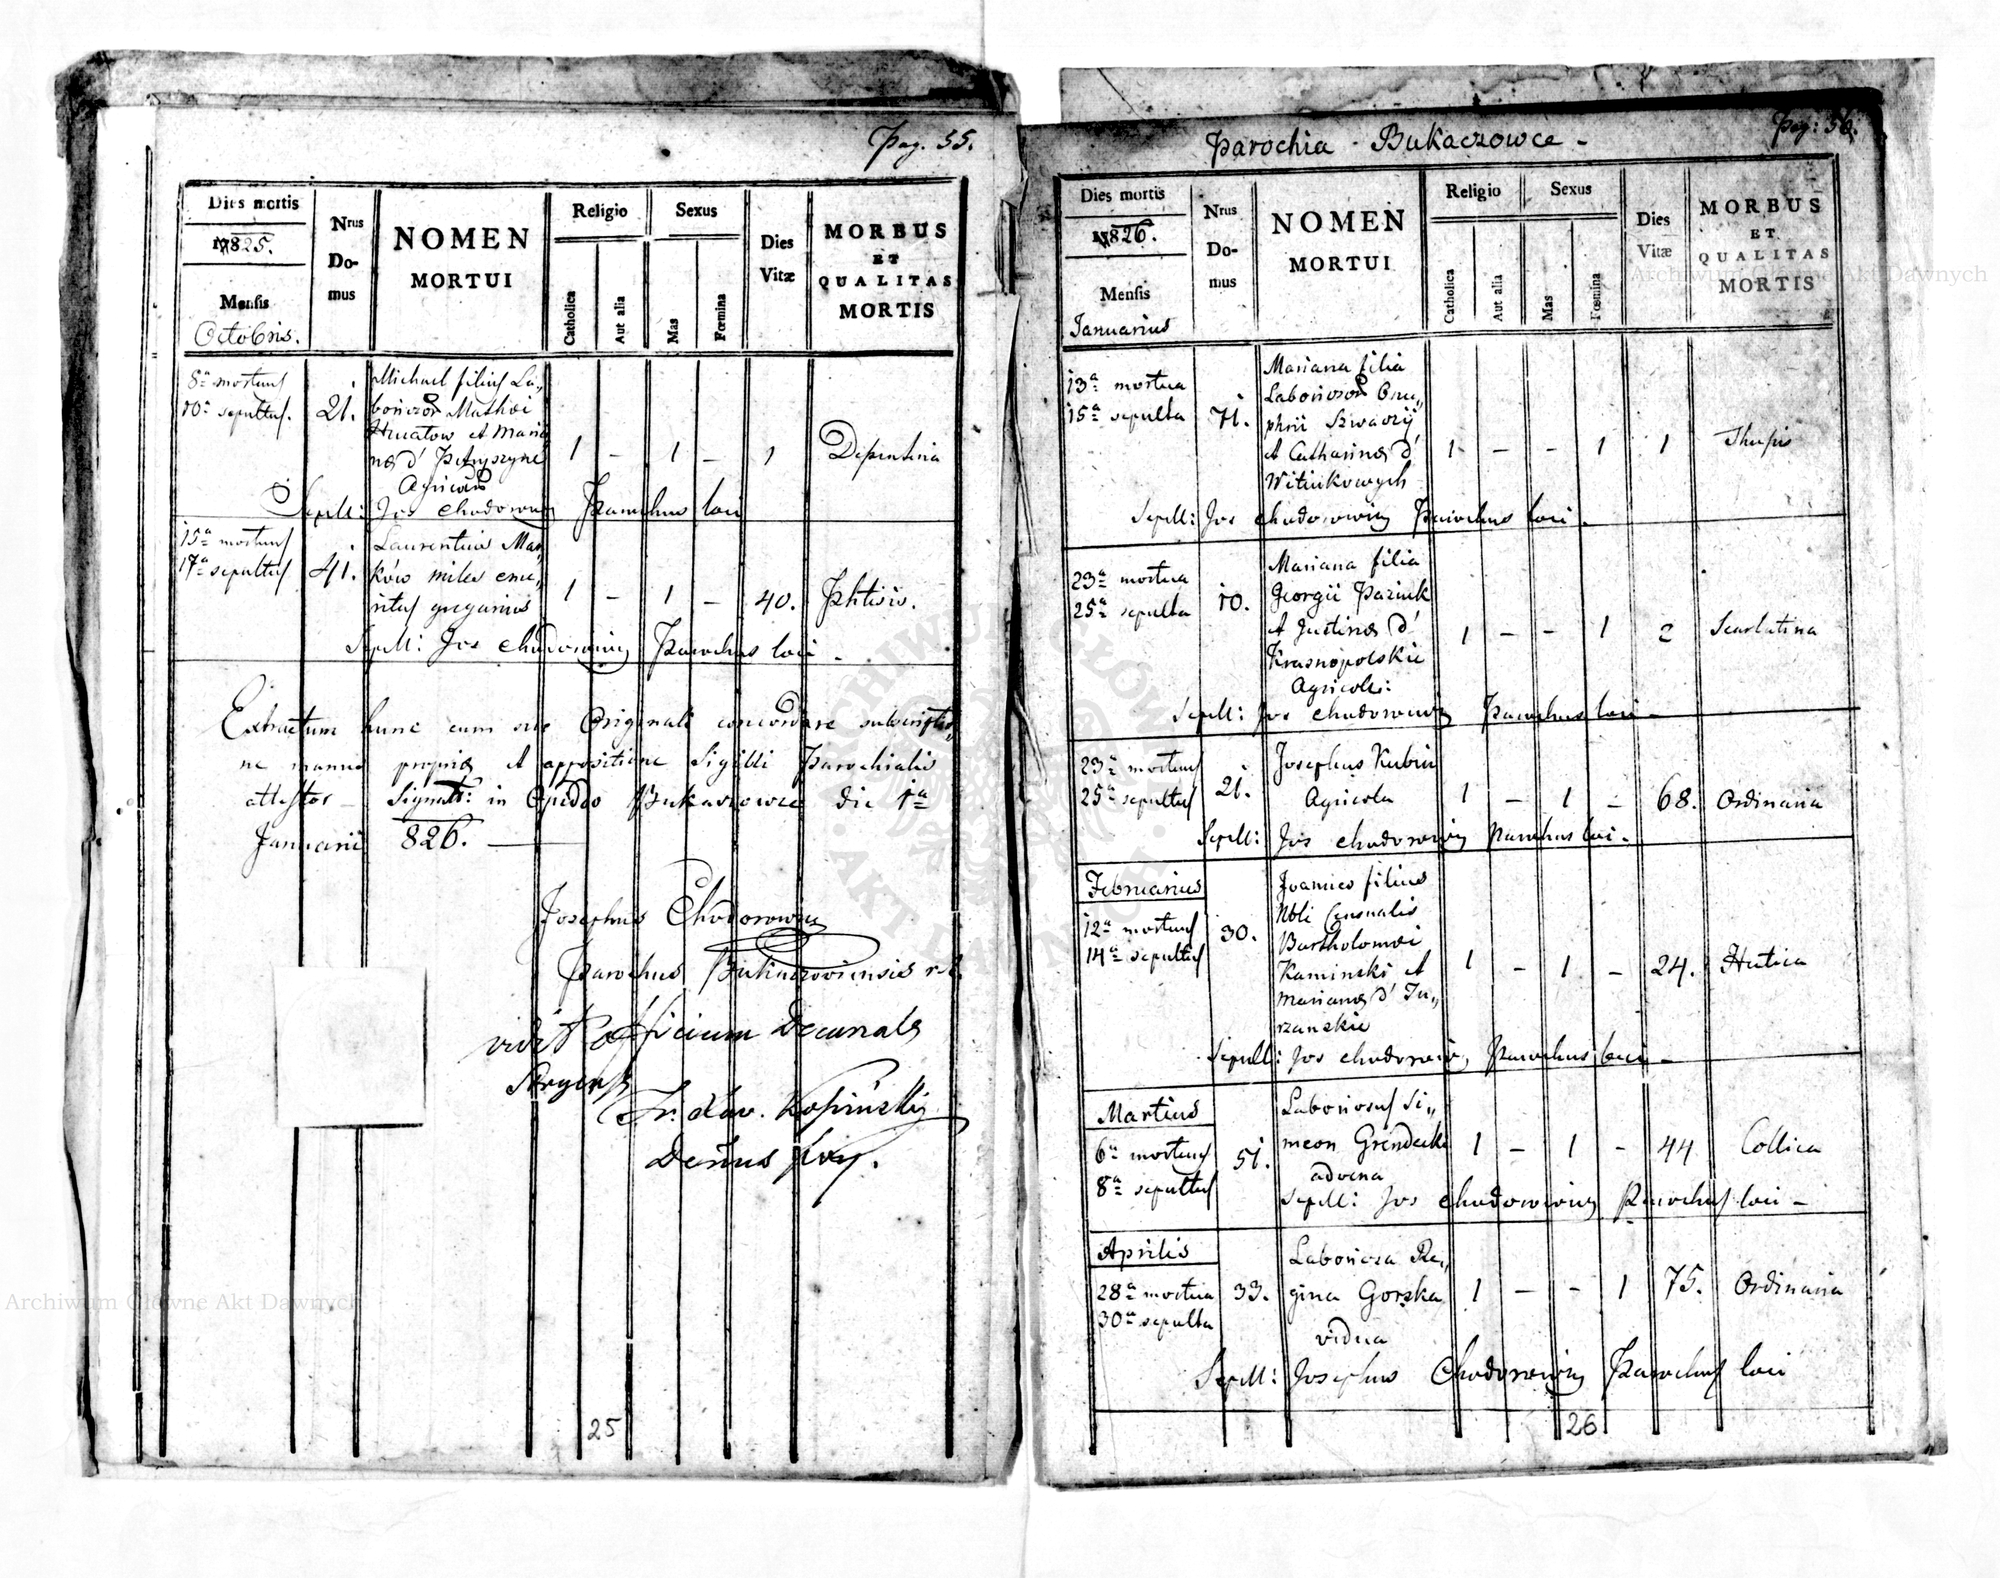 Pag. 55.
Dies mortis
1825.
Mensis
Octobris.
Nrus
Do-
mus
NOMEN
MORTUI
Religio
Catholica
Aut alia
Sexus
Mas
Fœmina
Dies
Vitæ
MORBUS
ET
QUALITAS
MORTIS
8a mortuus
10a sepultus.
21.
Michael filius La„
Mathei
et Maria
d'
Agricola
1 - 1 - 1
Sepell: Jos Chodorowicz Parochus loci
15a mortuus
17a sepultus
41.
Laurentius Mar„
ków miles eme„
ritus gregarius
1 - 1 - 40. Phtisis.
Sepell: Jos Chodorowicz Parochus loci -
Extractum hunc cum suo Originali concordare subscriptio„
ne manus propriæ et appositione Sigilli Parochialis
attestor - Signat: in Oppido Bukaczowce die 1a
Januarii 826.
Josephus Chodorowicz
Parochus Bukaczoviensis
vidit officium Decanale
Kopinski
25
Parochia - Bukaczowce -
Pag: 56.
Dies mortis
1826.
Mensis
Januarius
Nrus
Do-
mus
NOMEN
MORTUI
Religio
Catholica
Aut alia
Sexus
Mas
Fœmina
Dies
Vitæ
MORBUS
ET
QUALITAS
MORTIS
13a mortua
15a sepulta
71.
Mariana filia
Laboriosor Onu„
phrii Szwaczij
et Catharinæ d'
Witiukowych
1 - - 1 1
Sepell: Jos Chodorowicz Parochus loci.
23a mortua
25a sepulta
10.
Mariana filia
Georgii Paziuk
et Justinæ d'
Krasnopolskie
Agricole:
1 - - 1 2 Scarlatina
Sepell: Jos Chodorowicz Parochus loci -
23a mortuus
25a sepultus
21.
Josephus Kubin
Agricola
1 - 1 - 68. Ordinaria
Sepell: Jos Chodorowicz Parochus loci -
Februarius
12a mortuus
14a sepultus
30.
Joannes filius
Nbli Censualis
Bartholomei
Kaminski et
Marianæ d' Ju„
rzanskie
1 - 1 - 24. Hectica
Sepell: Jos Chodorowicz Parochus loci -
Martius
6a mortuus
8a sepultus
51.
Laboriosus Si„
meon
advena
1 - 1 - 44 Collica
Sepell: Jos Chodorowicz Parochus loci -
Aprilis
28a mortua
30a sepulta
33.
Laboriosa Re„
gina Gorska
vidua
1 - - 1 75. Ordinaria
Sepell: Josephus Chodorowicz Parochus loci
26
Archiwum Główne Akt Dawnych
Archiwum Główne Akt Dawnych
ARCHIWUM GŁÓWNE AKT DAWNYCH